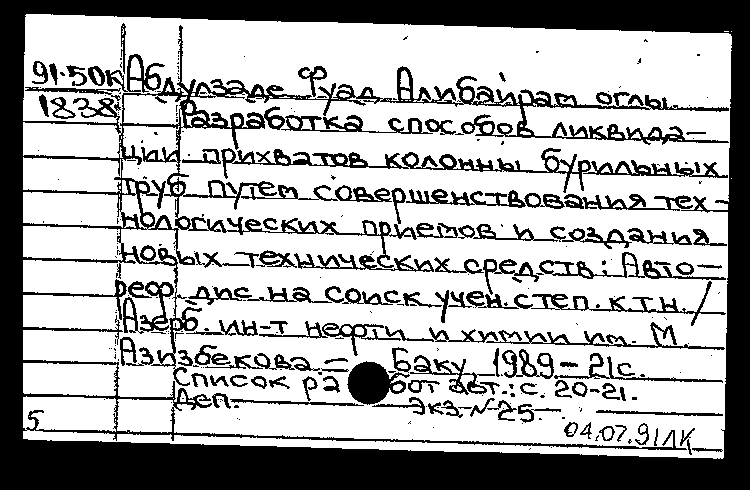 91-50К Абдулзаде Фуад Алибайрам оглы.
1838 Разработка способов ликвида-
ции прихватов колонны бурильных
труб путем совершенствования тех-
нологических приемов и создания
новых технических средств: Авто-
реф. дис. на соиск учен. степ. к.т.н. /
Азерб. ин-т нефти и химии им. М.
Азизбекова = Баку, 1989 - 21с.
Список работ авт.: с. 20-21.
Деп. Экз. N 25.
5 04.07.91 ЛК